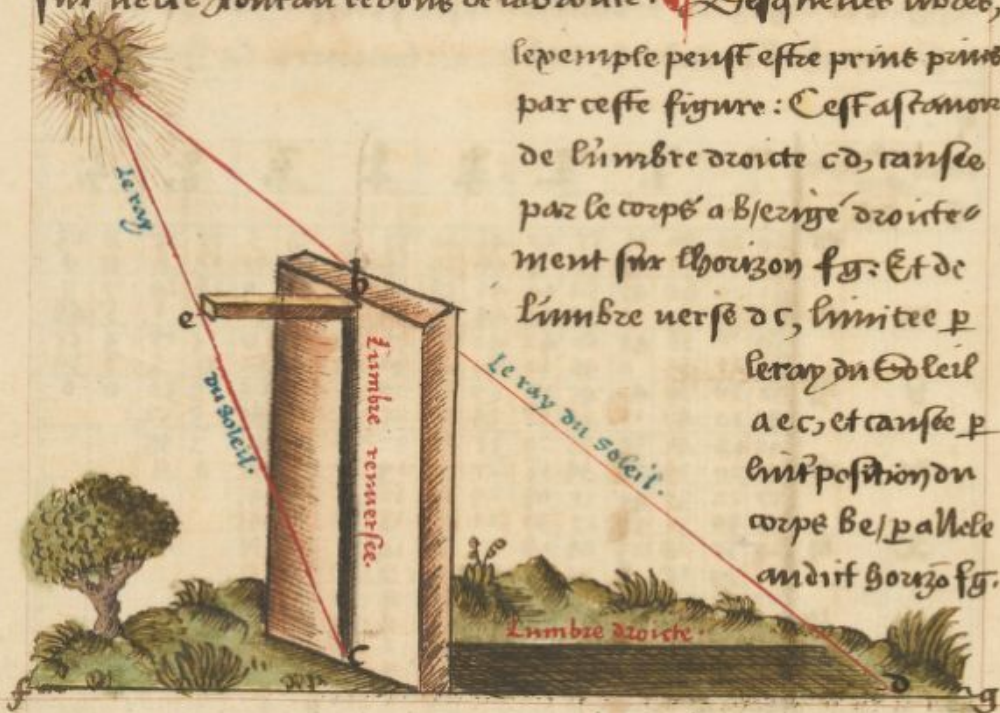 lexemple peust estre prins prins
par ceste figure : C'est ascavoir
de l'umbre droicte c d, causee
par le corps a b/ erigé droicte
ment sur lhorizon f g : Et de
l'umbre verse d c, limitee p
le ray du Soleil
a e c, et causee p
position du
corps b e / parallele
audict horizo f g.
a
Le ray
du soleil.
b
e
L'umbre renversee.
Le ray du soleil.
L'umbre droicte.
c
d
f
g